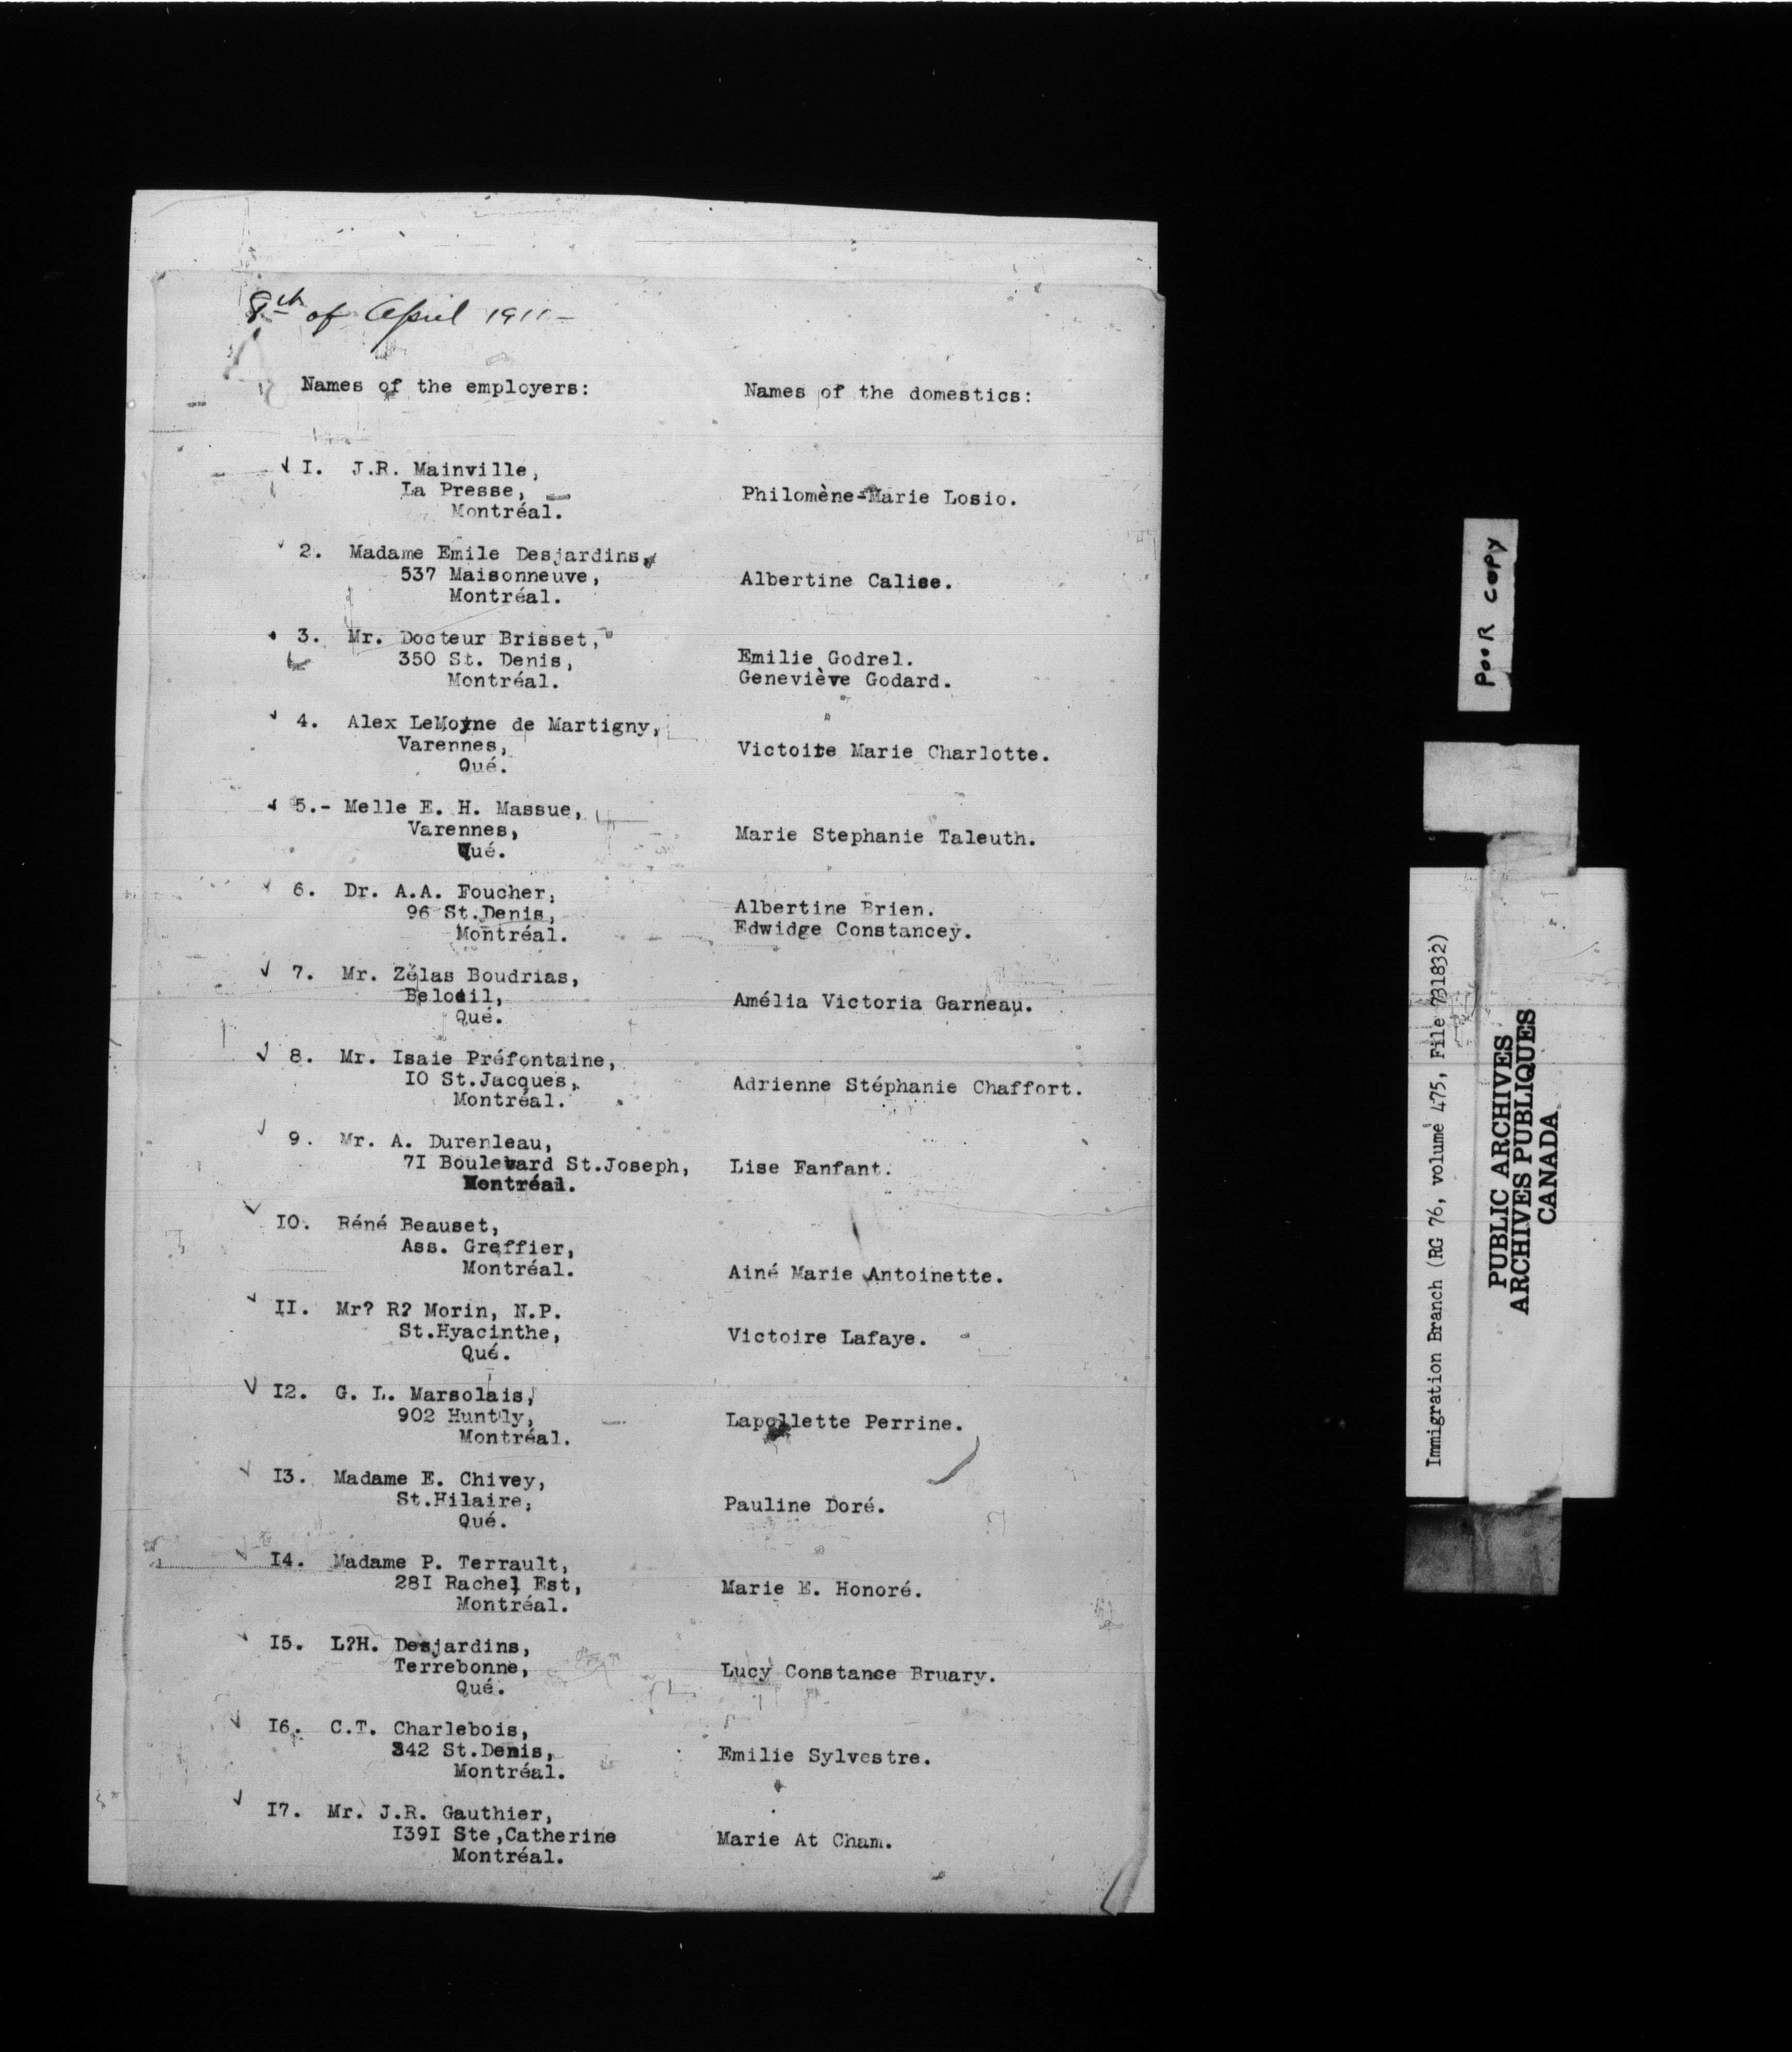 8th of April 1911-
Names of the employers: Names of the domestics:
I. J.R. Mainville,
La Presse, Philomène-Marie Losio.
Montréal.
2. Madame Emile Desjardins,
537 Maisonneuve, Albertine Calise.
Montréal.
3. Mr. Docteur Brisset,
350 St. Denis, Emilie Godrel.
Montréal. Geneviève Godard.
4. Alex LeMoyne de Martigny,
Varennes, Victoire Marie Charlotte.
Qué.
5.- Melle E. H. Massue,
Varennes, Marie Stephanie Taleuth.
Qué.
6. Dr. A.A. Foucher,
96 St.Denis, Albertine Brien.
Montréal. Edwidge Constancey.
7. Mr. Zélas Boudrias,
Beloeil, Amélia Victoria Garneau.
Qué.
8. Mr. Isaie Préfontaine,
IO St.Jacques, Adrienne Stéphanie Chaffort.
Montréal.
9. Mr. A. Durenleau,
7I Boulevard St.Joseph, Lise Fanfant.
Montréal.
IO. Réné Beauset,
Ass. Greffier,
Montréal. Ainé Marie Antoinette.
II. Mr? R? Morin, N.P.
St.Hyacinthe, Victoire Lafaye.
Qué.
I2. G. L. Marsolais,
902 Huntly, Lapollette Perrine.
Montréal.
I3. Madame E. Chivey,
St.Hilaire, Pauline Doré.
Qué.
I4. Madame P. Terrault,
28I Rachel Est, Marie E. Honoré.
Montréal.
I5. L?H. Desjardins,
Terrebonne, Lucy Constance Bruary.
Qué.
I6. C.T. Charlebois,
342 St.Denis, Emilie Sylvestre.
Montréal.
I7. Mr. J.R. Gauthier,
I39I Ste,Catherine Marie At Cham.
Montréal.
POOR COPY
Immigration Branch (RG 76, volume 475, File 731832)
PUBLIC ARCHIVES
ARCHIVES PUBLIQUES
CANADA